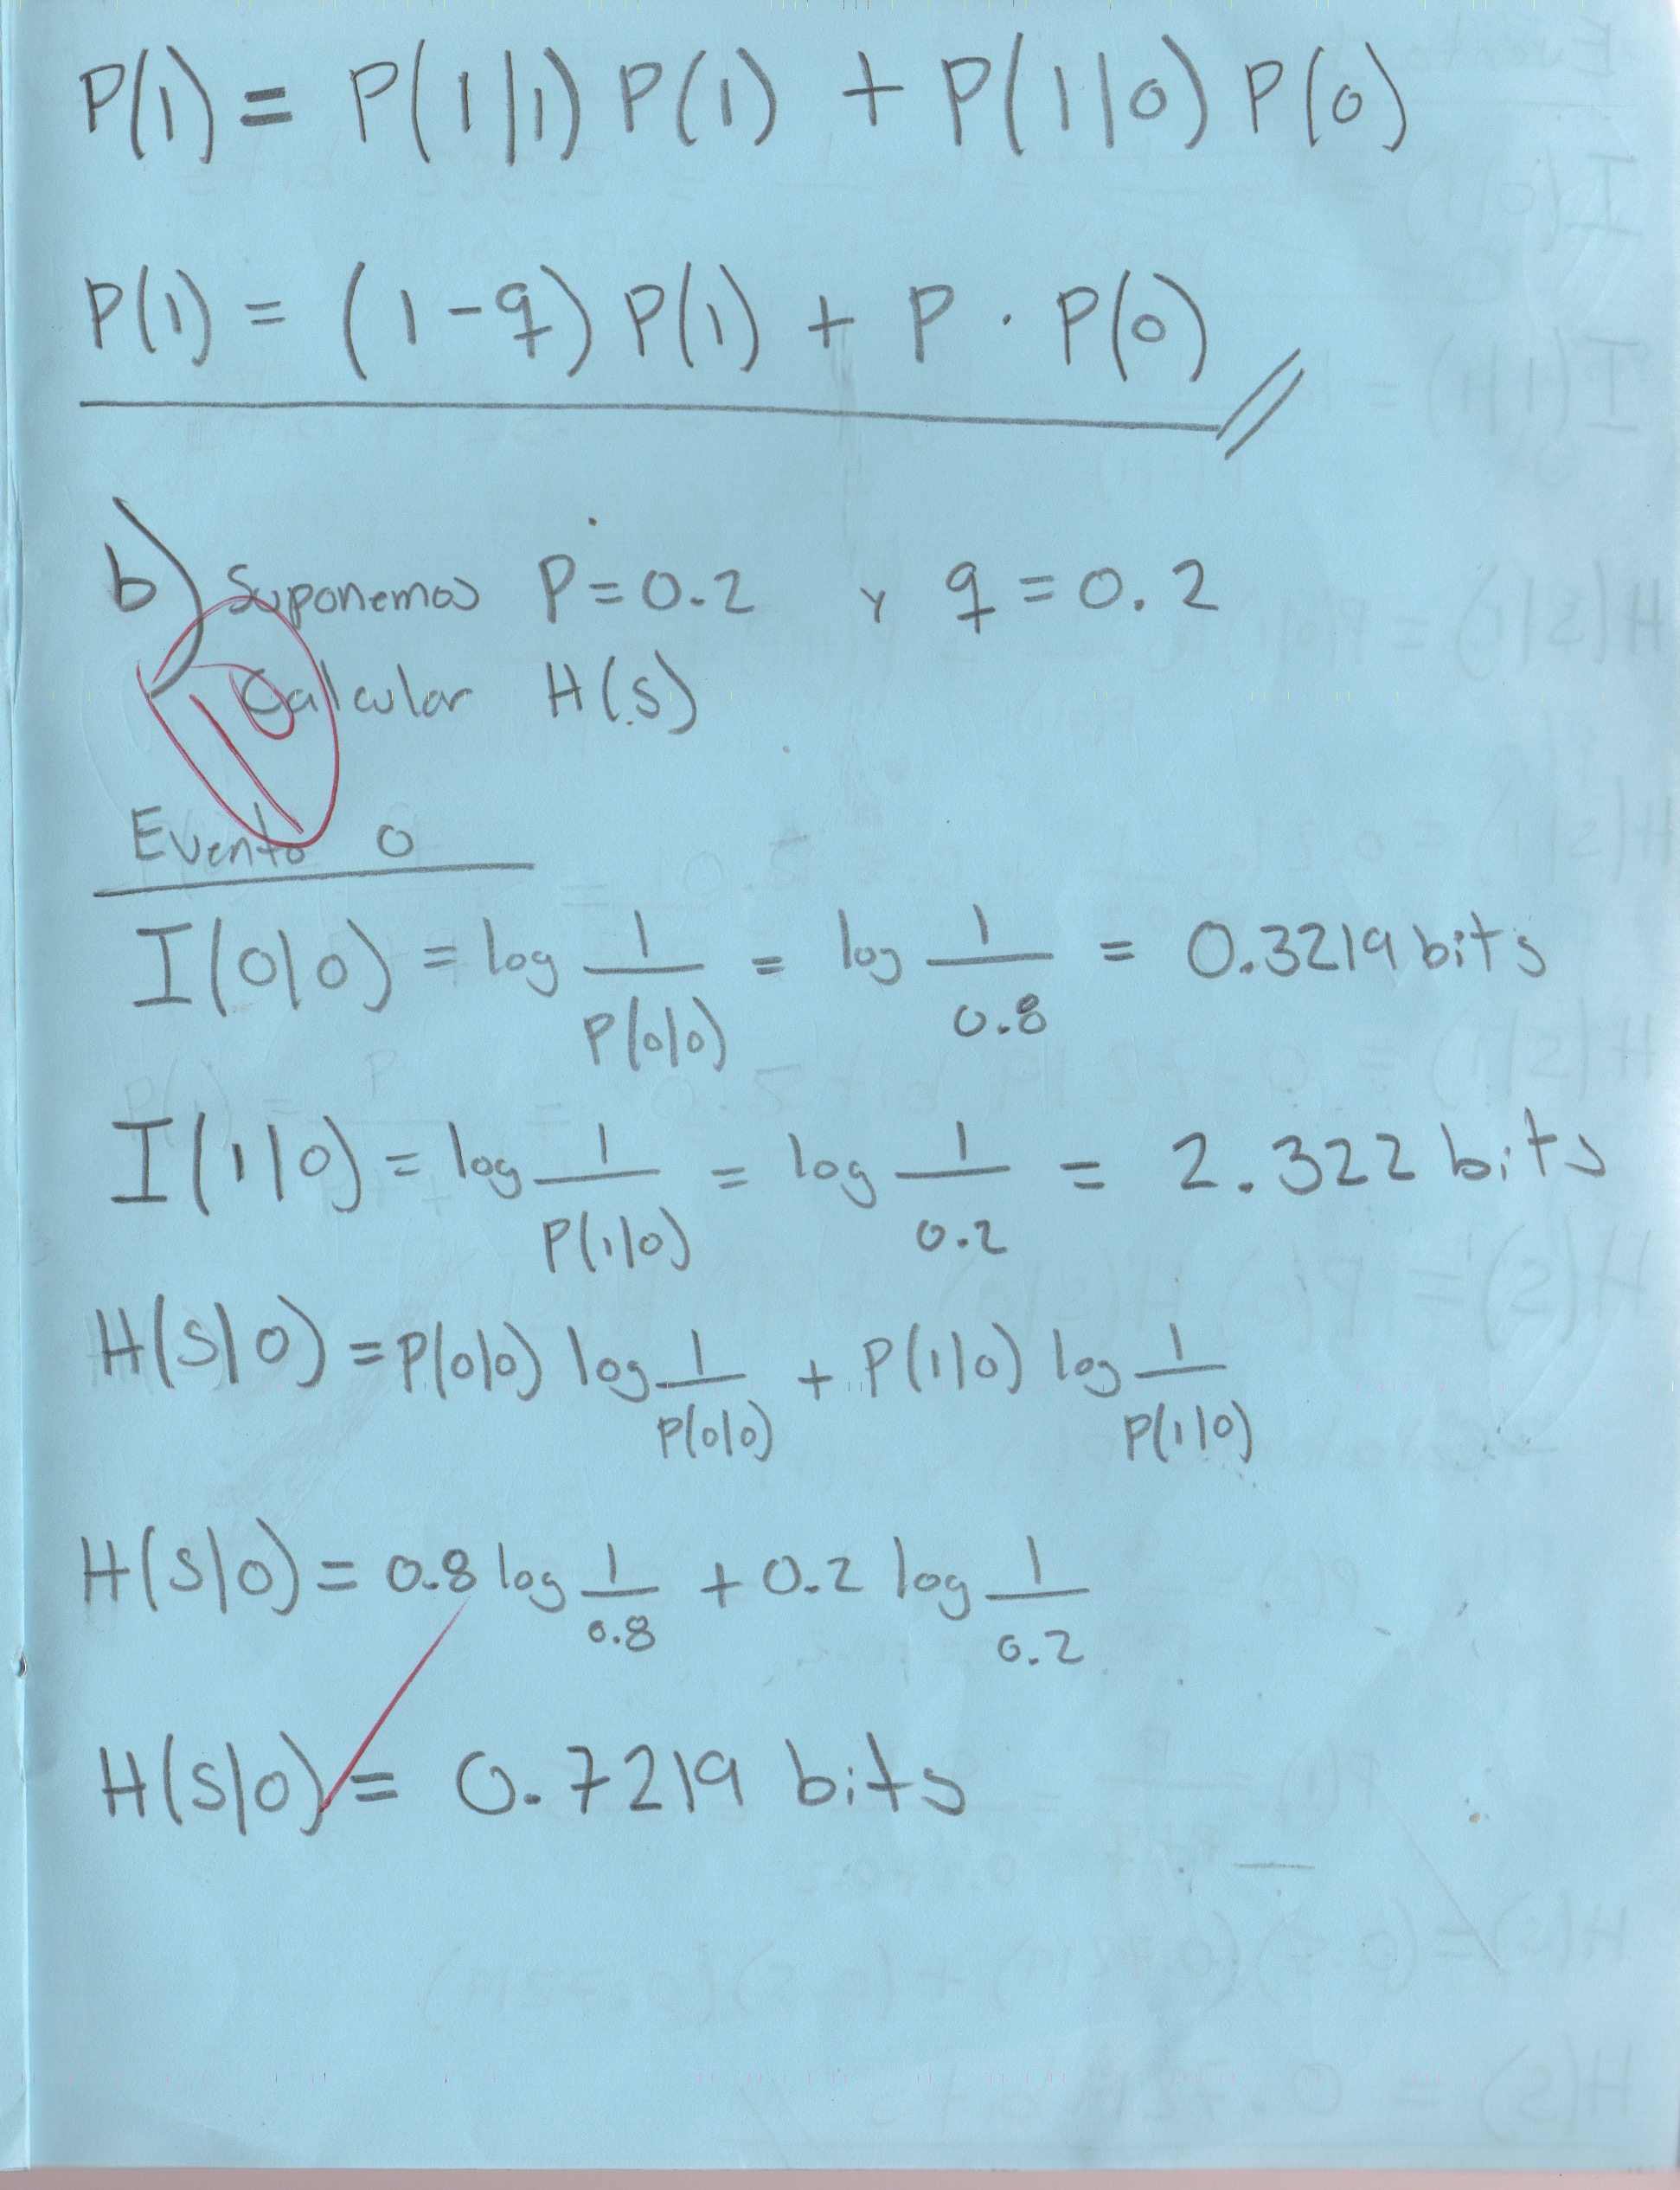 P(1) = P(1|1) P(1) + P(1|0) P(0)
P(1) = (1-q) P(1) + P · P(0)
b) Suponemos P=0.2 Y q=0.2
Calcular H(S)
10
Evento 0
I(0|0) = log 1/P(0|0) = log 1/0.8 = 0.3219 bits
I(1|0) = log 1/P(1|0) = log 1/0.2 = 2.322 bits
H(S|0) = P(0|0) log 1/P(0|0) + P(1|0) log 1/P(1|0)
H(S|0) = 0.8 log 1/0.8 + 0.2 log 1/0.2
H(S|0) = 0.7219 bits